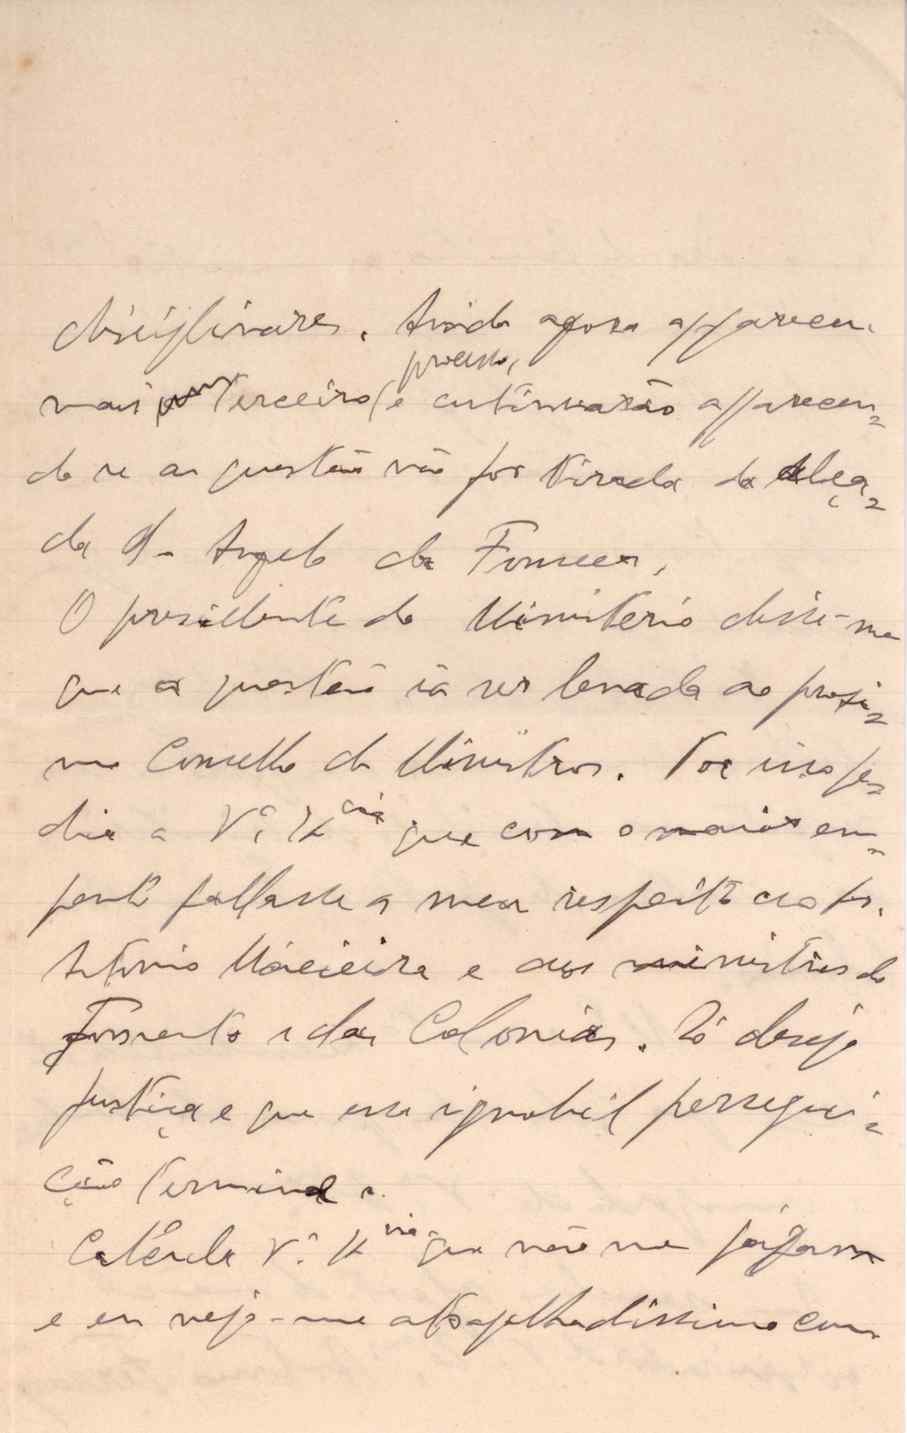 disciplinares. Ainda agora appareceu
mais um terceiro (processo, e continuarão apparecen=
do se a questão não for tirada da alça=
da d. Angelo da Fonseca,
O presidente do Ministerio disse-me
que a questão ia ser levada ao proxi=
mo Conselho de Ministros. Por isso pe=
dia a V.ª Ex.cia que com o maior em=
penho fallasse a meu respeito ao Dr.
Antonio Macieira e aos ministros do
Fomento e das Colonias. Só desejo
justiça e que essa ignobil persegui=
ção termine.
Calcule V.ª Ex.cia que não me págam
e eu vejo-me atrapalhadissimo com